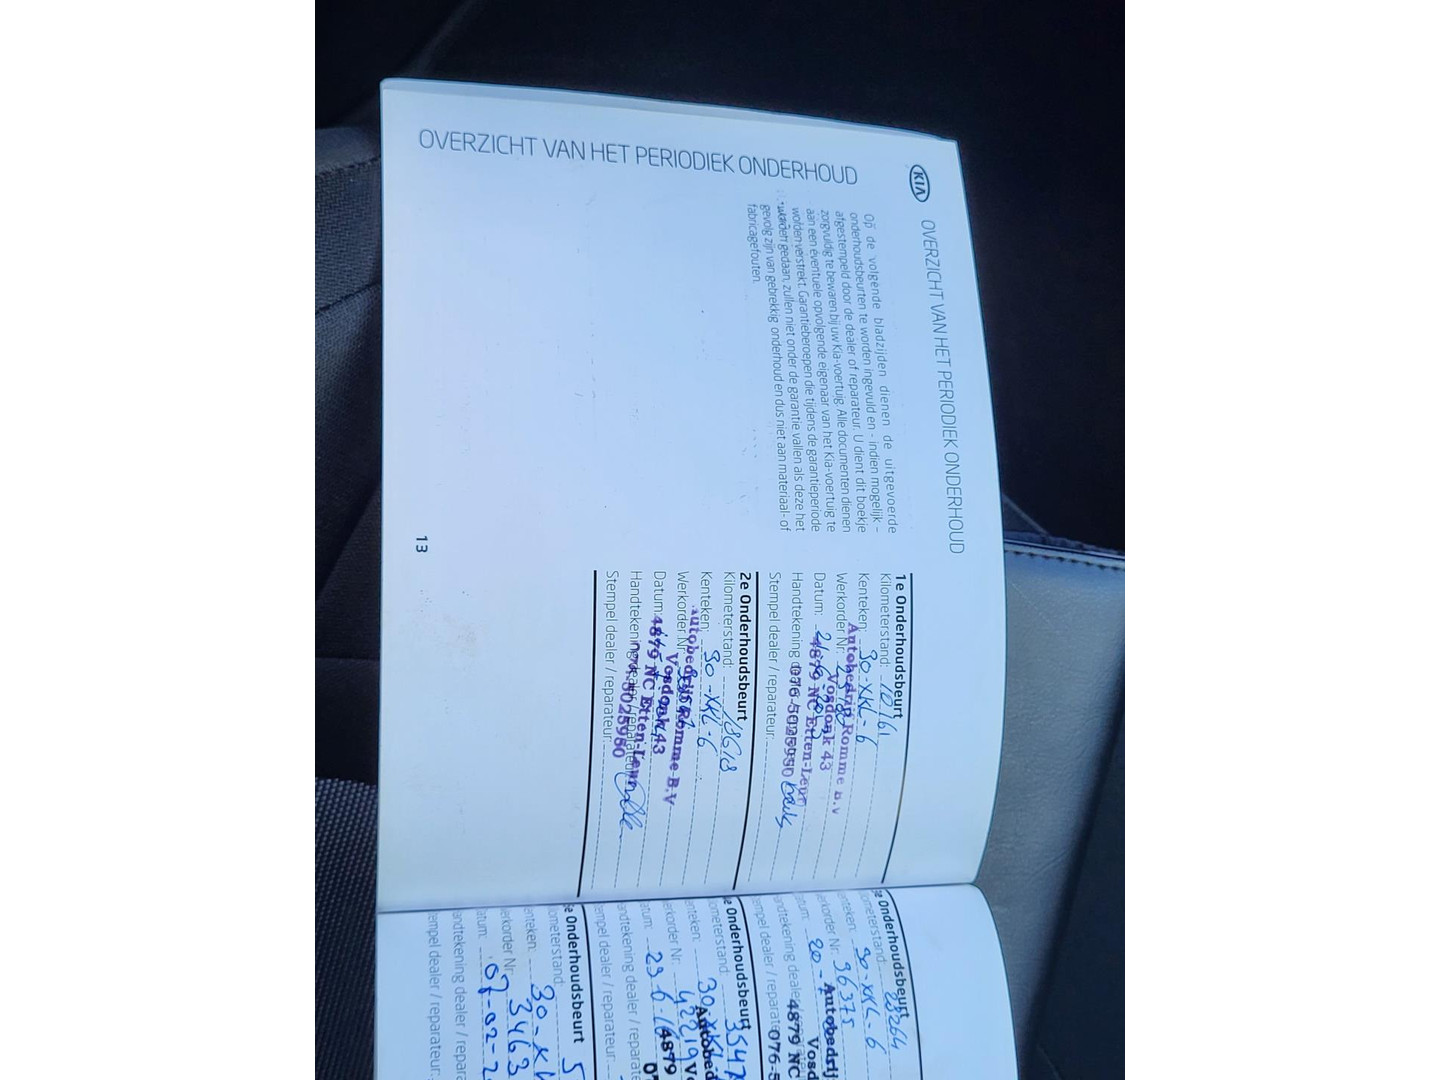 OVERZICHT VAN HET PERIODIEK ONDERHOUD
KIA
OVERZICHT VAN HET PERIODIEK ONDERHOUD
Op de volgende bladzijden dienen de uitgevoerde
onderhoudsbeurten te worden ingevuld en - indien mogelijk -
afgestempeld door de dealer of reparateur. U dient dit boekje
zorgvuldig te bewaren bij uw Kia-voertuig. Alle documenten dienen
aan een eventuele opvolgende eigenaar van het Kia-voertuig te
worden verstrekt. Garantieberoepen die tijdens de garantieperiode
worden gedaan, zullen niet onder de garantie vallen als deze het
gevolg zijn van gebrekkig onderhoud en dus niet aan materiaal- of
fabricagefouten.
13
1e Onderhoudsbeurt
Kilometerstand: 10161
Kenteken: 30-XKL-6
Werkorder Nr.
Datum:
Handtekening
Stempel dealer / reparateur:
Autobedrijf Romme B.V
Vosdonk 43
4879 NC Etten-Leur
076-5025950
2e Onderhoudsbeurt
Kilometerstand: 18618
Kenteken: 30-XKL-6
Werkorder Nr.
Datum:
Handtekening
Stempel dealer / reparateur:
Autobedrijf Romme B.V
Vosdonk 43
4879 NC Etten-Leur
5025950
e Onderhoudsbeurt
ometerstand: 28264
enteken: 30-XKL-6
erkorder Nr. 36375
atum: 20-
ndtekening deale
empel dealer / reparate
Autobedrij
Vosd
4879 NC
076-5
e Onderhoudsbeurt
ometerstand: 3547
enteken: 30XKL
erkorder Nr. 42219
atum: 23-6-16
andtekening dealer / reparate
empel dealer / reparateur:
Autobed
4879
e Onderhoudsbeurt
lometerstand: 5
enteken: 30-XK
erkorder Nr. 3463
atum: 07-02-2
andtekening dealer / repara
tempel dealer / reparateur: